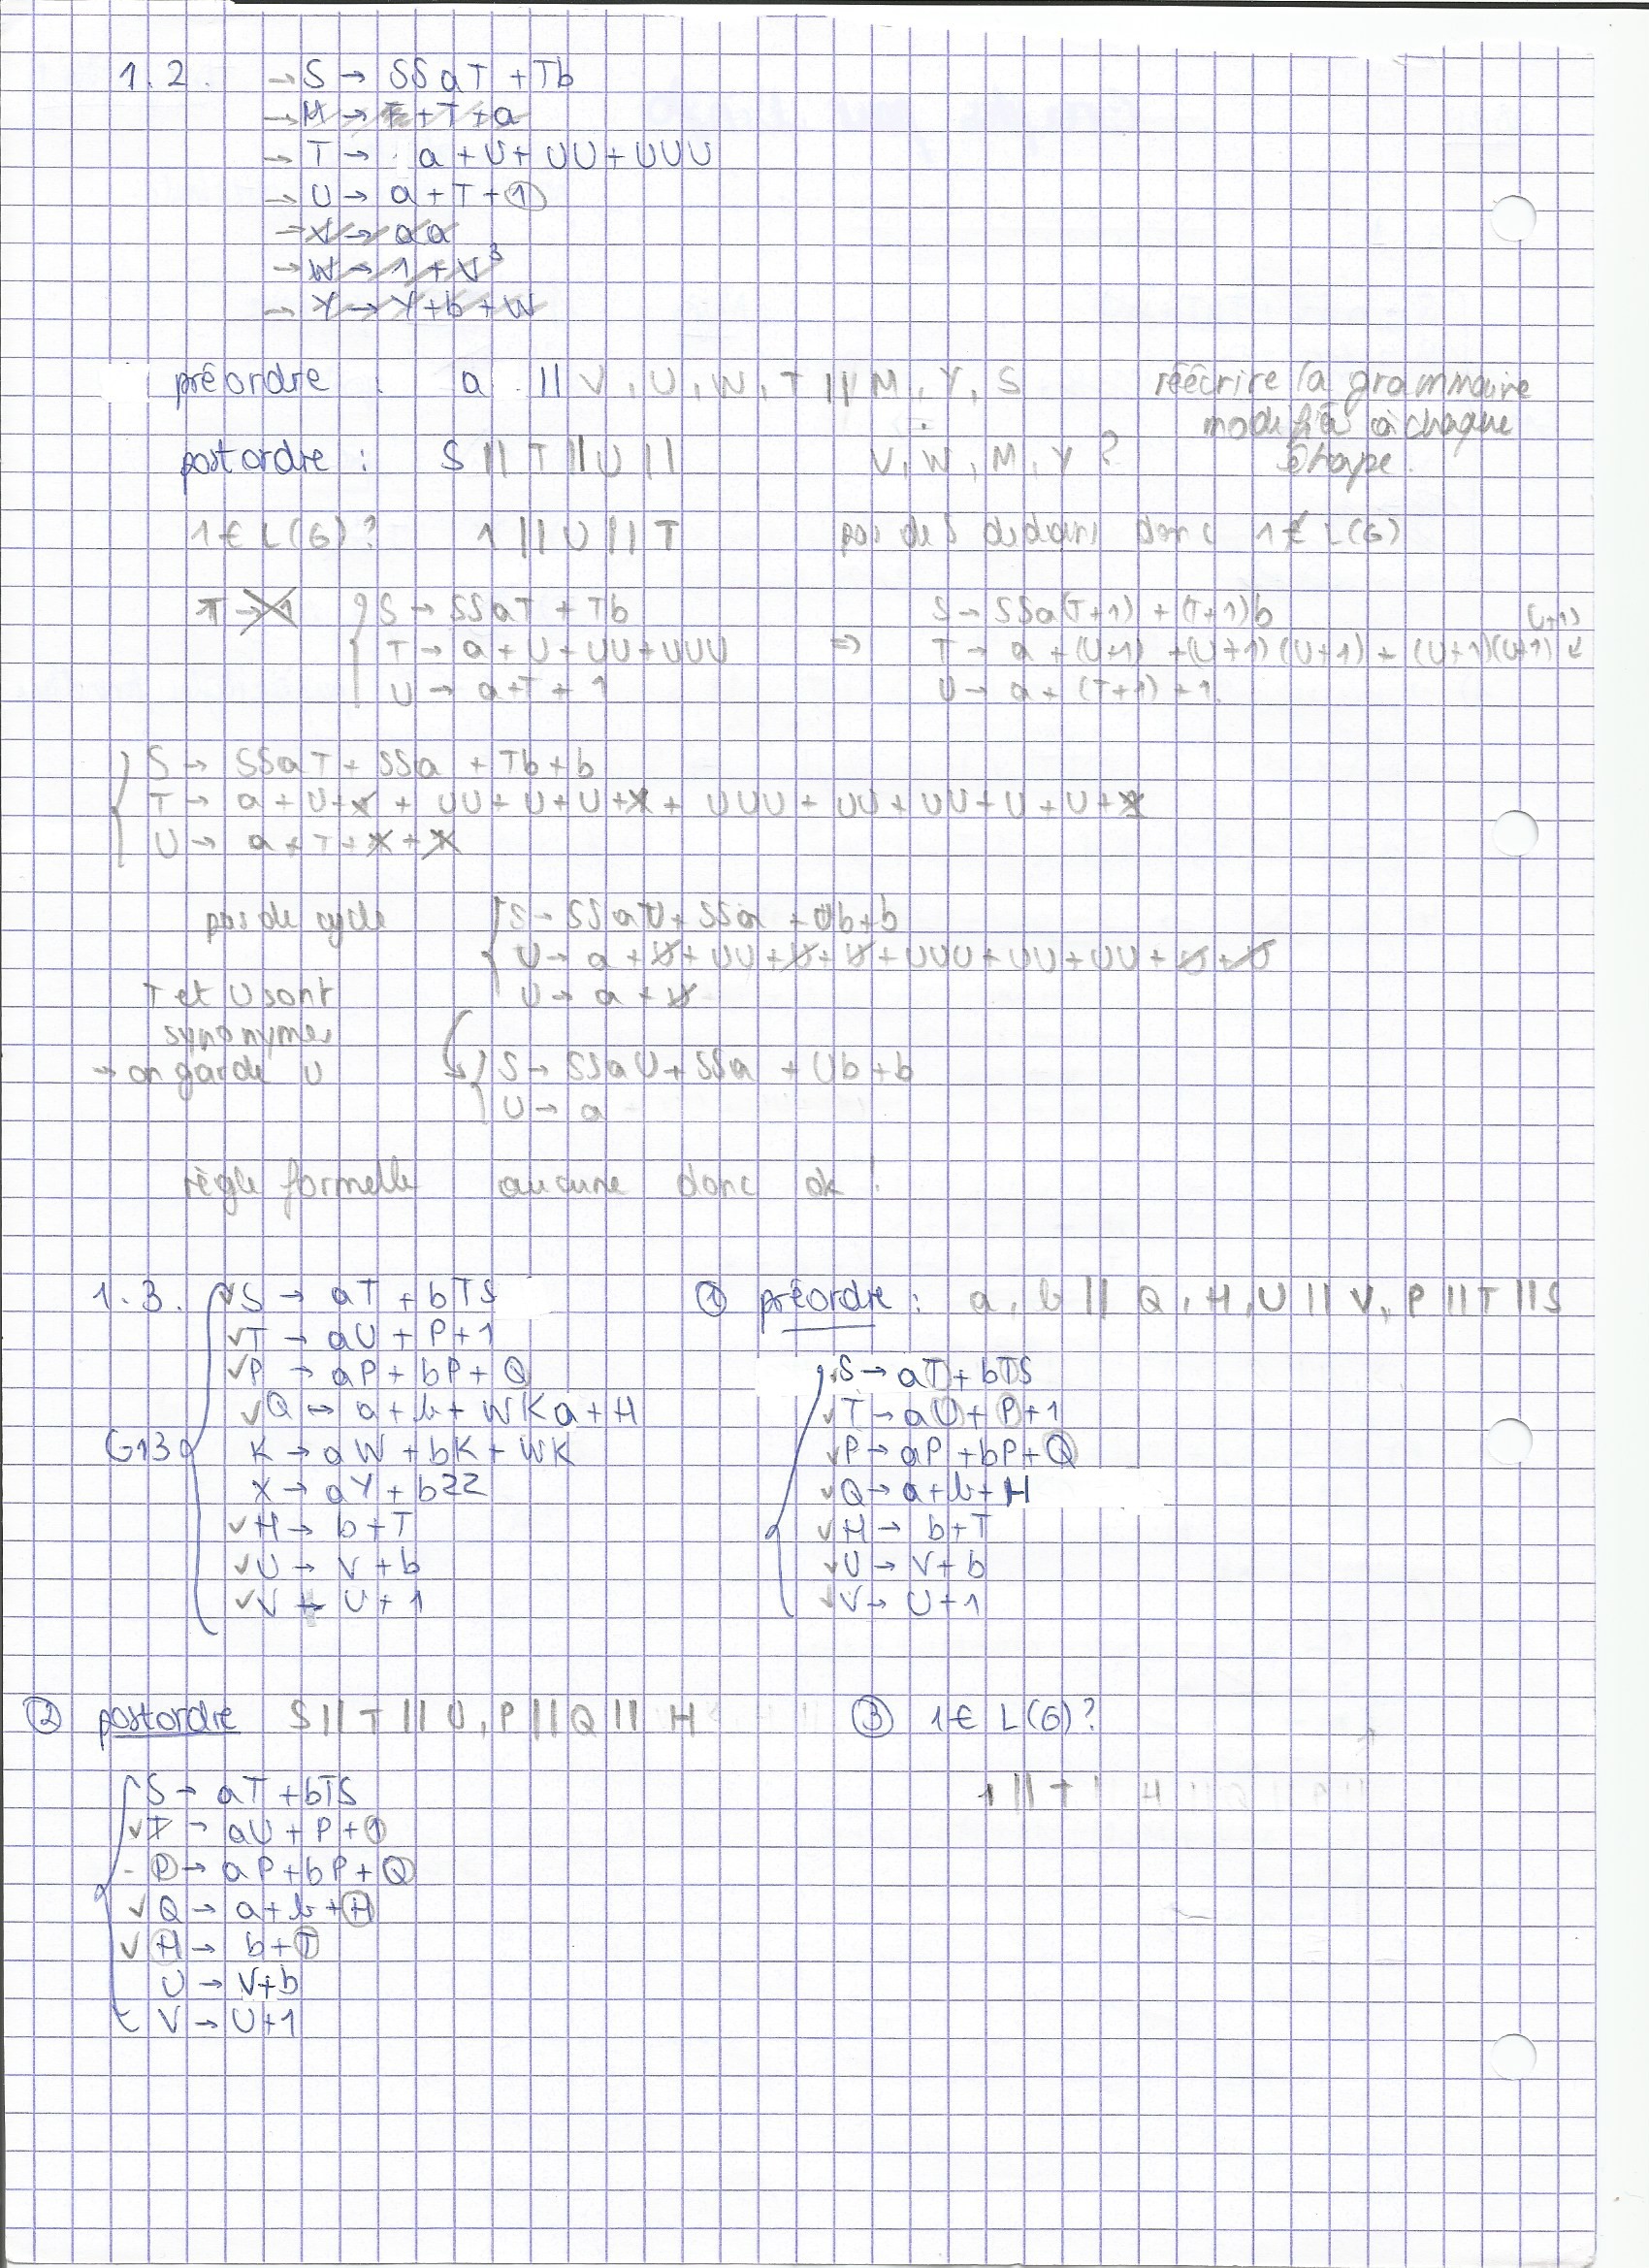 1.2. → S → SSaT + Tb
→ M → T + T + a
→ T → a + U + UU + UUU
→ U → a + T + 1
→ V → aa
→ W → 1 + V³
→ Y → Y + b + W
préordre : a || V, U, W, T || M, Y, S
réécrire la grammaire
modifiée à chaque
étape.
postordre : S || T || U || V, W, M, Y ?
1 ∈ L(G) ? 1 || U || T pas de S dedans donc 1 ∉ L(G)
S → SSaT + Tb
T → a + U + UU + UUU
U → a + T + 1
⇒
S → SSa(T+1) + (T+1)b
T → a + (U+1) + (U+1)(U+1) + (U+1)(U+1)(U+1)
U → a + (T+1) + 1
S → SSaT + SSa + Tb + b
T → a + U + 1 + UU + U + U + 1 + UUU + UU + UU + U + U + 1
U → a + T + 1 + 1
pas de cycle
T et U sont
synonymes
→ on garde U
S → SSaU + SSa + Ub + b
U → a + U + UU + U + U + UUU + UU + UU + U + U
U → a + U
S → SSaU + SSa + Ub + b
U → a
règle formelle aucune donc ok !
1.3. G13
S → aT + bTS
T → aU + P + 1
P → aP + bP + Q
Q → a + b + WKa + H
K → aW + bK + WK
X → aY + bZZ
H → b + T
U → V + b
V → U + 1
① préordre : a, b || Q, H, U || V, P || T || S
S → aT + bTS
T → aU + P + 1
P → aP + bP + Q
Q → a + b + H
H → b + T
U → V + b
V → U + 1
② postordre S || T || U, P || Q || H
S → aT + bTS
T → aU + P + 1
P → aP + bP + Q
Q → a + b + H
H → b + T
U → V + b
V → U + 1
③ 1 ∈ L(G) ?
1 || T || H